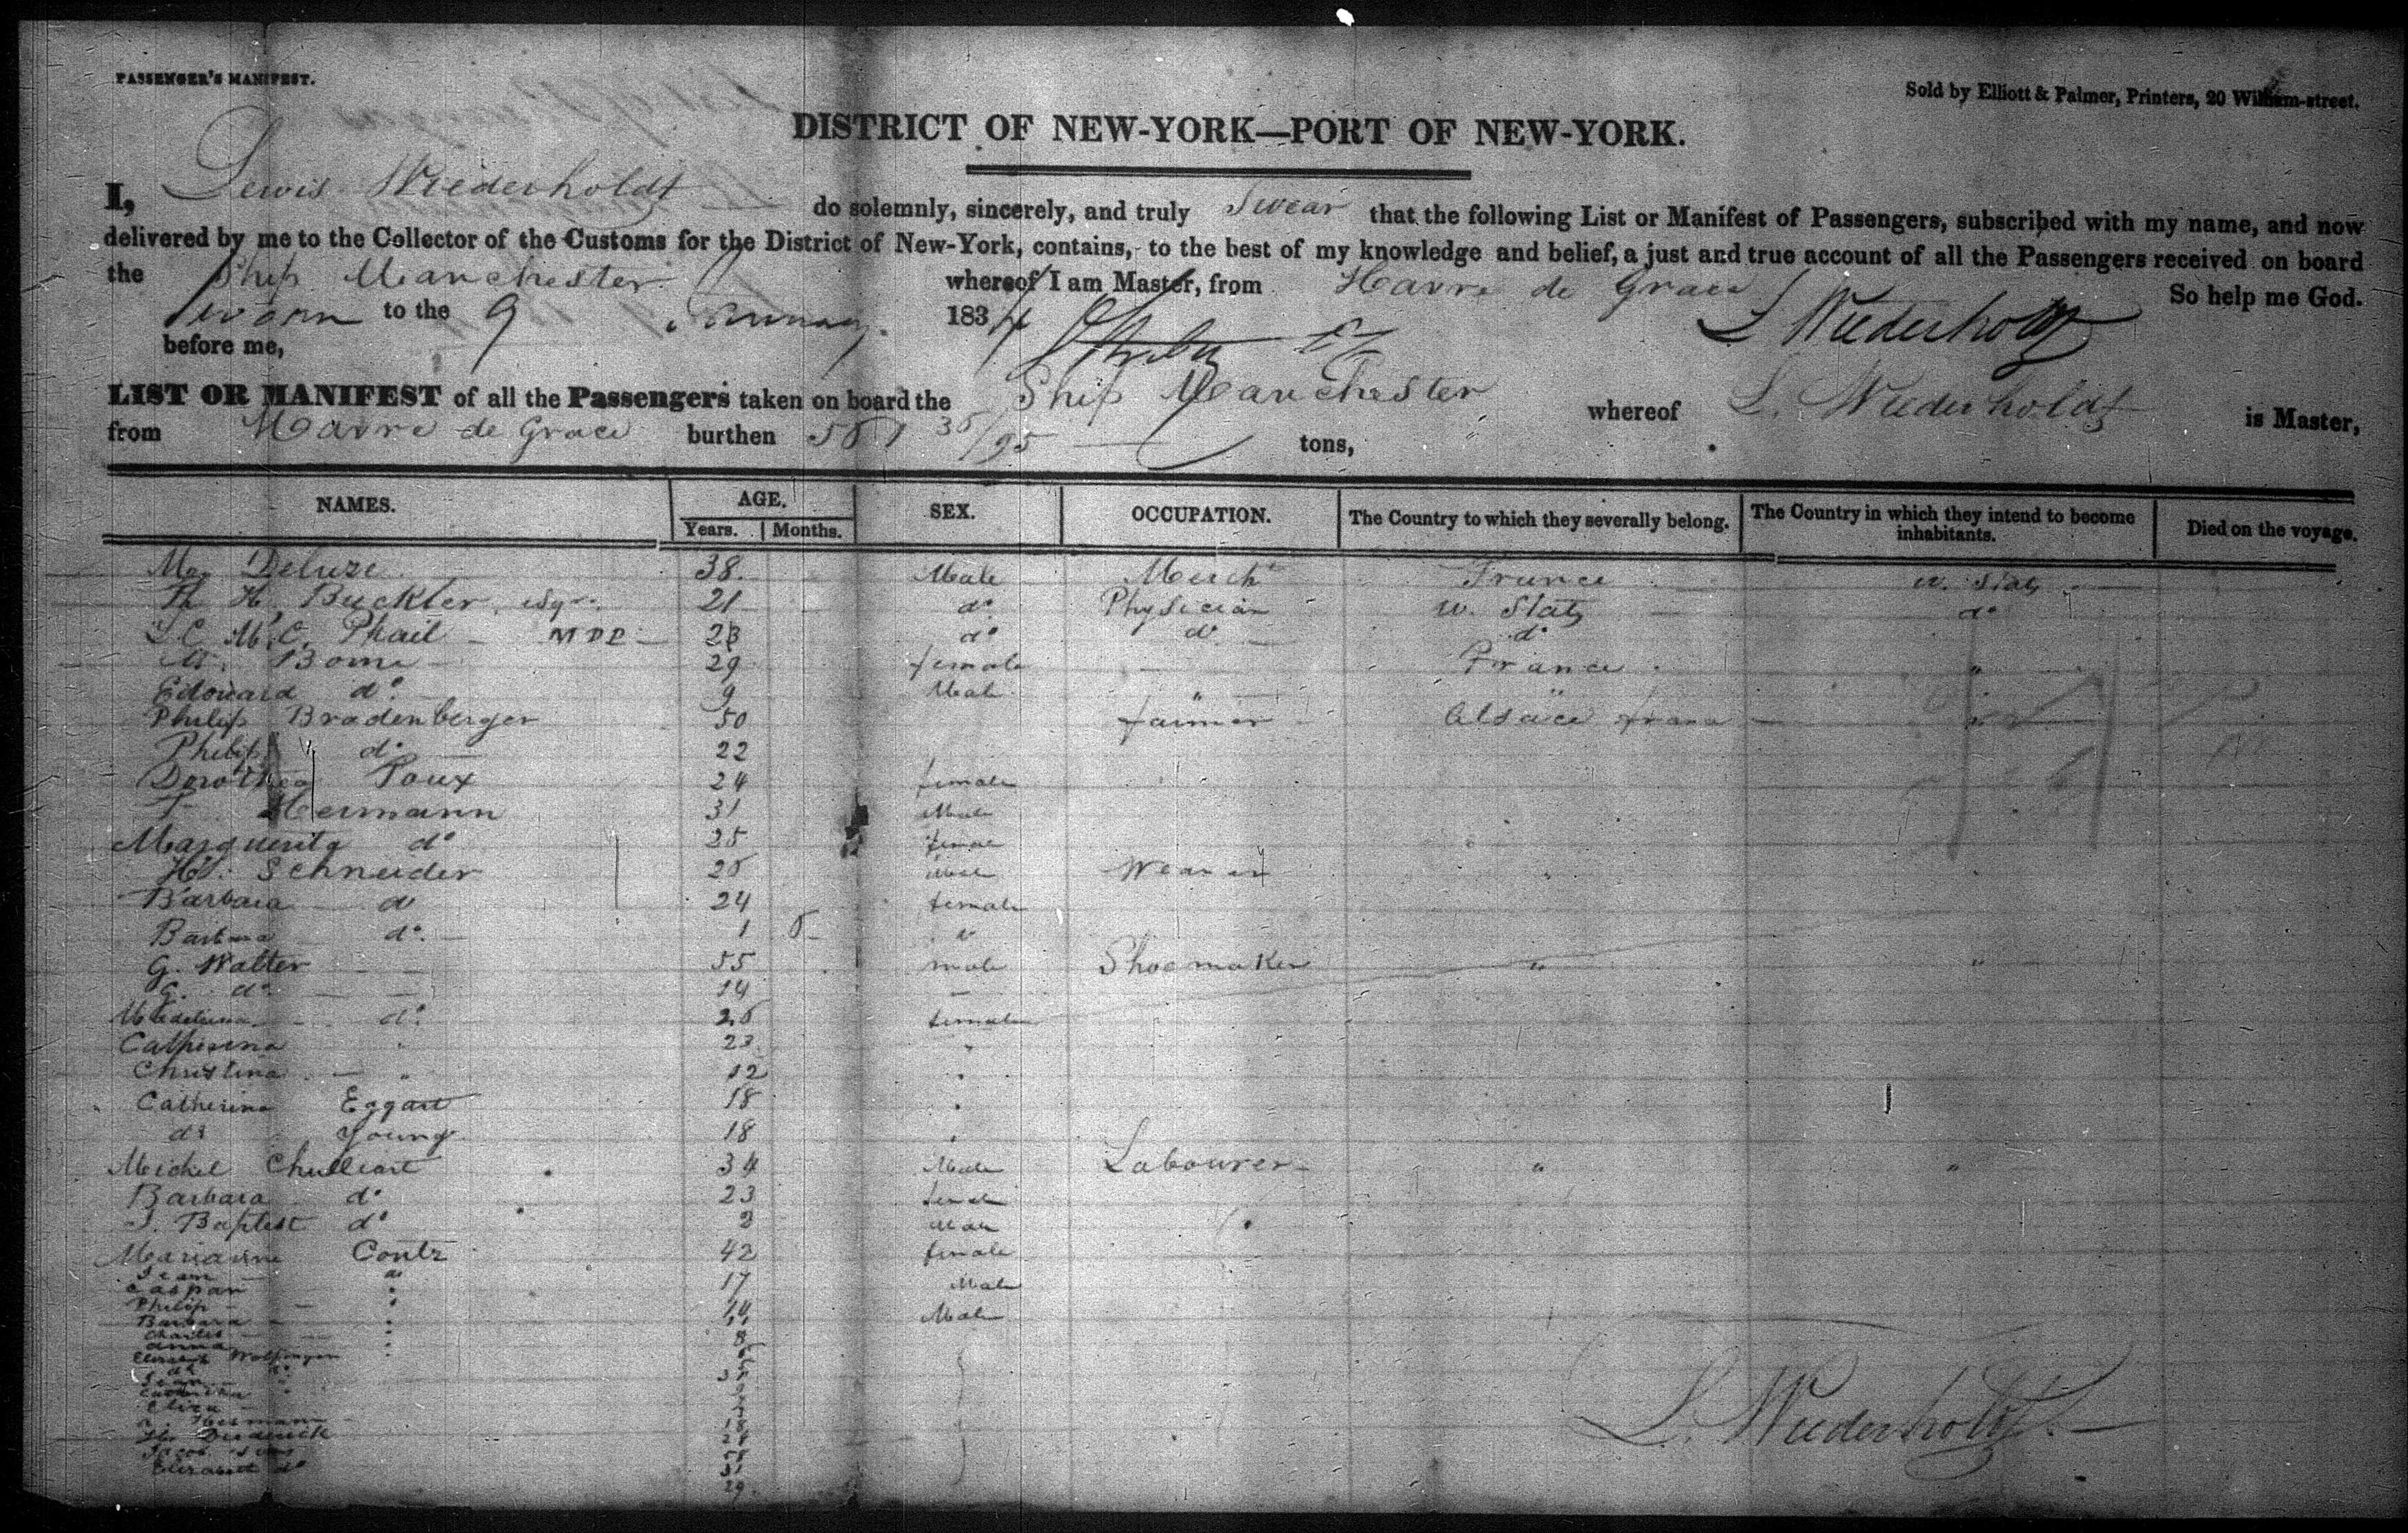 PASSENGER'S MANIFEST.
Sold by Elliott & Palmer, Printers, 20 William-street.
DISTRICT OF NEW-YORK—PORT OF NEW-YORK.
I, Lewis Wiederholdt do solemnly, sincerely, and truly Swear that the following List or Manifest of Passengers, subscribed with my name, and now
delivered by me to the Collector of the Customs for the District of New-York, contains, to the best of my knowledge and belief, a just and true account of all the Passengers received on board
the Ship Manchester whereof I am Master, from Havre de Grace So help me God.
Sworn to the 9 January 1834 L Wiederholdt
before me,
LIST OR MANIFEST of all the Passengers taken on board the Ship Manchester whereof L. Wiederholdt is Master,
from Havre de Grace burthen 36/95 tons,
NAMES. AGE. SEX. OCCUPATION. The Country to which they severally belong. The Country in which they intend to become inhabitants. Died on the voyage.
Years. Months.
Deluze 38 Male Mercht France U. States
Th H. Buckler, esqr. 21 do Physician U. States do
Mc. Phail 23 do do do
29 female France "
Edouard do. 9 Male " "
Philip Bradenberger 50 farmer Alsace "
Philip do 22
Dorothea Poux 24 female
Hermann 31 Male
Marguerite do 25 female
Schneider Male Weaver "
Barbara do 24 female
Barbara do. 1
G. Walter 55 male Shoemaker " "
G. do. 14
do. female
Catherina " 23 "
Christina " 12 "
Catherina Eggart 18 "
do Young 18 "
Michel Chulliart 34 Male Labourer " "
Barbara do 23 female
J. Baptist do 2 Male
Marianne Contz 42 female
Jean do 17 Male
Caspar "
Philip " 14 Male
Barbara " 11
Charles " 8
Anna "
Elisabeth Wolfinger
do do
Jean "
Catherina "
Eliza
Hermann
Jacob
Elisabeth do
29
L. Wiederholdt